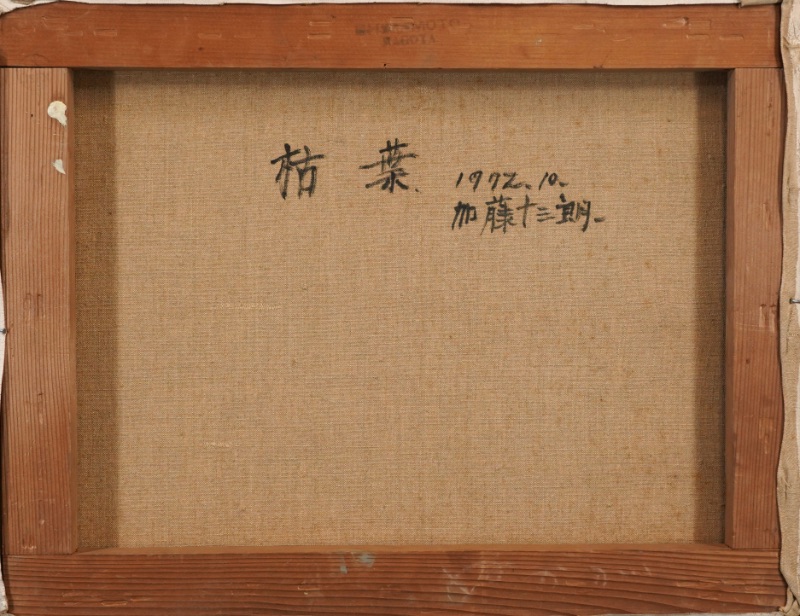 枯葉.
1972.10.
加藤十三朗.